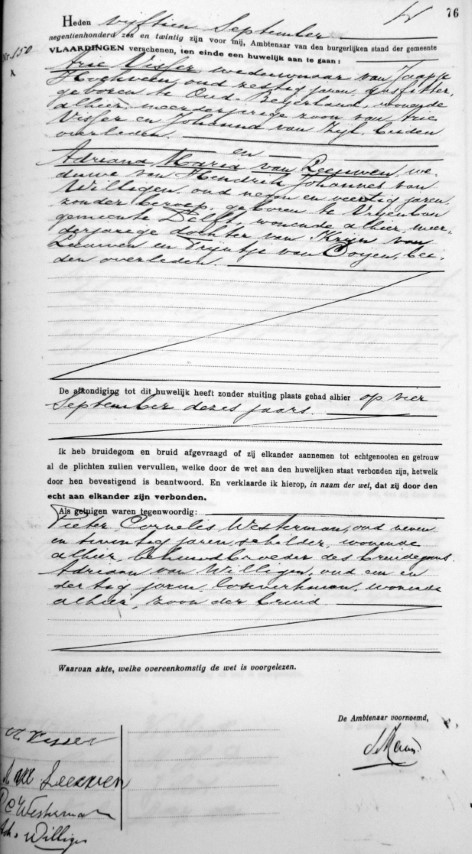 76
Heden vijftien September
negentienhonderd zes en twintig zijn voor mij, Ambtenaar van den burgerlijken stand der gemeente
No. 150
VLAARDINGEN verschenen, ten einde een huwelijk aan te gaan:
A
Arie Visser, weduwnaar van Jaapje
Hoogwerf, oud zestig jaren, gasfitter,
geboren te Oud-Beijerland, wonende
alhier, meerderjarige zoon van Arie
Visser en Johanna van Zijl, beiden
overleden.
en
Adriana Maria van Leeuwen, we-
duwe van Hendrik Johannes van
Willigen, oud negen en veertig jaren,
zonder beroep, geboren te Vrijenban
gemeente Delft, wonende alhier, meer-
derjarige dochter van Krijn van
Leeuwen en Trijntje vanOoyen, bei-
den overleden.
De afkondiging tot dit huwelijk heeft zonder stuiting plaats gehad alhier op vier
September dezes jaars.
Ik heb bruidegom en bruid afgevraagd of zij elkander aannemen tot echtgenooten en getrouw
al de plichten zullen vervullen, welke door de wet aan den huwelijken staat verbonden zijn, hetwelk
door hen bevestigend is beantwoord. En verklaarde ik hierop, in naam der wet, dat zij door den
echt aan elkander zijn verbonden.
Als getuigen waren tegenwoordig:
Pieter Cornelis Westerman, oud zeven
en twintig jaren, schilder, wonende
alhier, behuwdbroeder des bruidegoms,
Adriaan van Willigen, oud een en
dertig jaren, wonende
alhier, zoon der bruid.
Waarvan akte, welke overeenkomstig de wet is voorgelezen.
De Ambtenaar voornoemd,
A. Visser
A M v Leeuwen
P C Westerman
Ad. v. Willigen